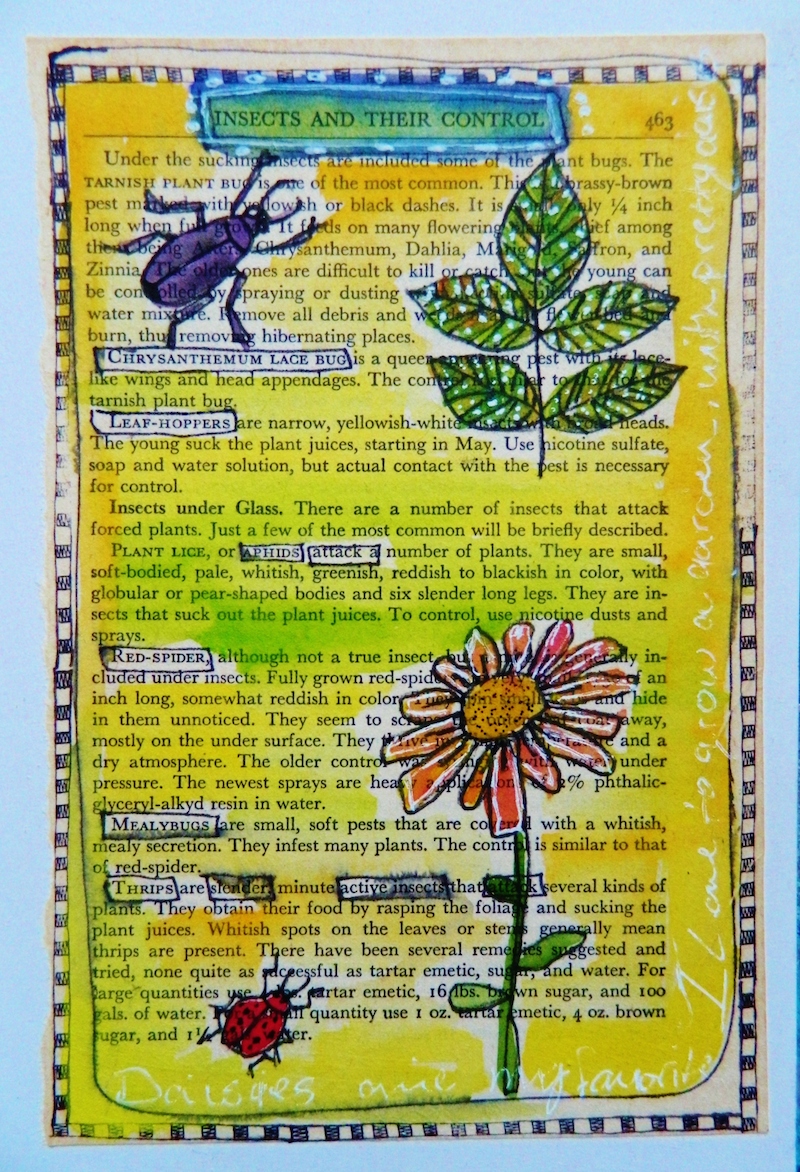 INSECTS AND THEIR CONTROL 463
Under the sucking insects are included some of the plant bugs. The
TARNISH PLANT BUG is one of the most common. This brassy-brown
pest marked with yellowish or black dashes. It is only ¼ inch
long when full grown. It feeds on many flowering plants, chief among
them being Asters, Chrysanthemum, Dahlia, Marigold, Saffron, and
Zinnia. The older ones are difficult to kill or catch, but the young can
be controlled by spraying or dusting sulfate, soap and
water mixture. Remove all debris and
burn, thus removing hibernating places.
CHRYSANTHEMUM LACE BUG is a queer appearing pest with its lace-
like wings and head appendages. The control is similar to that for the
tarnish plant bug.
LEAF-HOPPERS are narrow, yellowish-white insects with broad heads.
The young suck the plant juices, starting in May. Use nicotine sulfate,
soap and water solution, but actual contact with the pest is necessary
for control.
Insects under Glass. There are a number of insects that attack
forced plants. Just a few of the most common will be briefly described.
PLANT LICE, or APHIDS attack a number of plants. They are small,
soft-bodied, pale, whitish, greenish, reddish to blackish in color, with
globular or pear-shaped bodies and six slender long legs. They are in-
sects that suck out the plant juices. To control, use nicotine dusts and
sprays.
RED-SPIDER, although not a true insect, but generally in-
cluded under insects. Fully grown red-spider of an
inch long, somewhat reddish in color, hide
in them unnoticed. They seem to scrape away,
mostly on the under surface. They thrive in and a
dry atmosphere. The older control was with water under
pressure. The newest sprays are heavy applications of 2% phthalic-
glyceryl-alkyd resin in water.
MEALYBUGS are small, soft pests that are covered with a whitish,
mealy secretion. They infest many plants. The control is similar to that
of red-spider.
THRIPS are slender, minute active insects that attack several kinds of
plants. They obtain their food by rasping the foliage and sucking the
plant juices. Whitish spots on the leaves or stems generally mean
thrips are present. There have been several remedies suggested and
tried, none quite as successful as tartar emetic, sugar, and water. For
large quantities use lbs. tartar emetic, 16 lbs. brown sugar, and 100
gals. of water. For small quantity use 1 oz. tartar emetic, 4 oz. brown
sugar, and 1½ water.
Daisies are my favorite
I Love to grow a garden with pretty